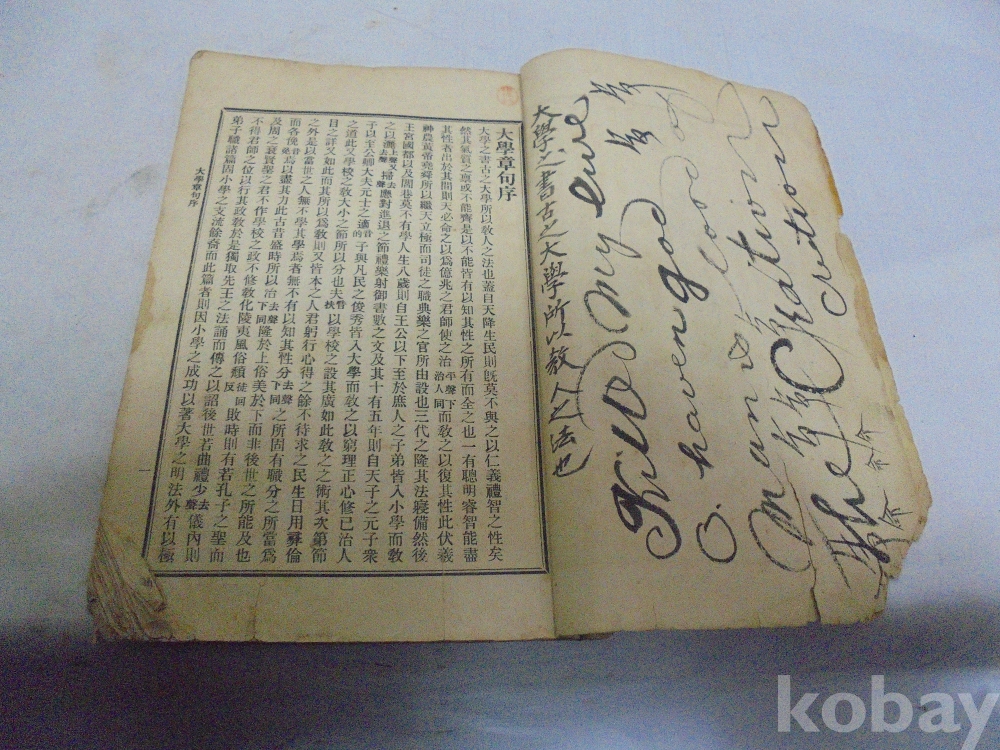 The Creation
cretion
mean is eation
O. haven god good of
my live
大學之書古之大學所以敎人之法也
大學章句序
大學之書古之大學所以敎人之法也蓋自天降生民則旣莫不與之以仁義禮智之性矣
然其氣質之稟或不能齊是以不能皆有以知其性之所有而全之也一有聰明睿智能盡
其性者出於其間則天必命之以爲億兆之君師使之治平聲下治人同而敎之以復其性此伏羲
神農黃帝堯舜所以繼天立極而司徒之職典樂之官所由設也三代之隆其法寖備然後
王宮國都以及閭巷莫不有學人生八歲則自王公以下至於庶人之子弟皆入小學而敎
之以灑上聲又去聲掃去聲應對進退之節禮樂射御書數之文及其十有五年則自天子之元子衆
子以至公卿大夫元士之適音的子與凡民之俊秀皆入大學而敎之以窮理正心修己治人
之道此又學校之敎大小之節所以分也夫音扶以學校之設其廣如此敎之之術其次第節
目之詳又如此而其所以爲敎則又皆本之人君躬行心得之餘不待求之民生日用彛倫
之外是以當世之人無不學其學焉者無不有以知其性分去聲下同之所固有職分之所當爲
而各俛音免焉以盡其力此古昔盛時所以治去聲下同隆於上俗美於下而非後世之所能及也
及周之衰賢聖之君不作學校之政不修敎化陵夷風俗頹徒回反敗時則有若孔子之聖而
不得君師之位以行其政敎於是獨取先王之法誦而傳之以詔後世若曲禮少去聲儀內則
弟子職諸篇固小學之支流餘裔而此篇者則因小學之成功以著大學之明法外有以極
大學章句序
一
kobay